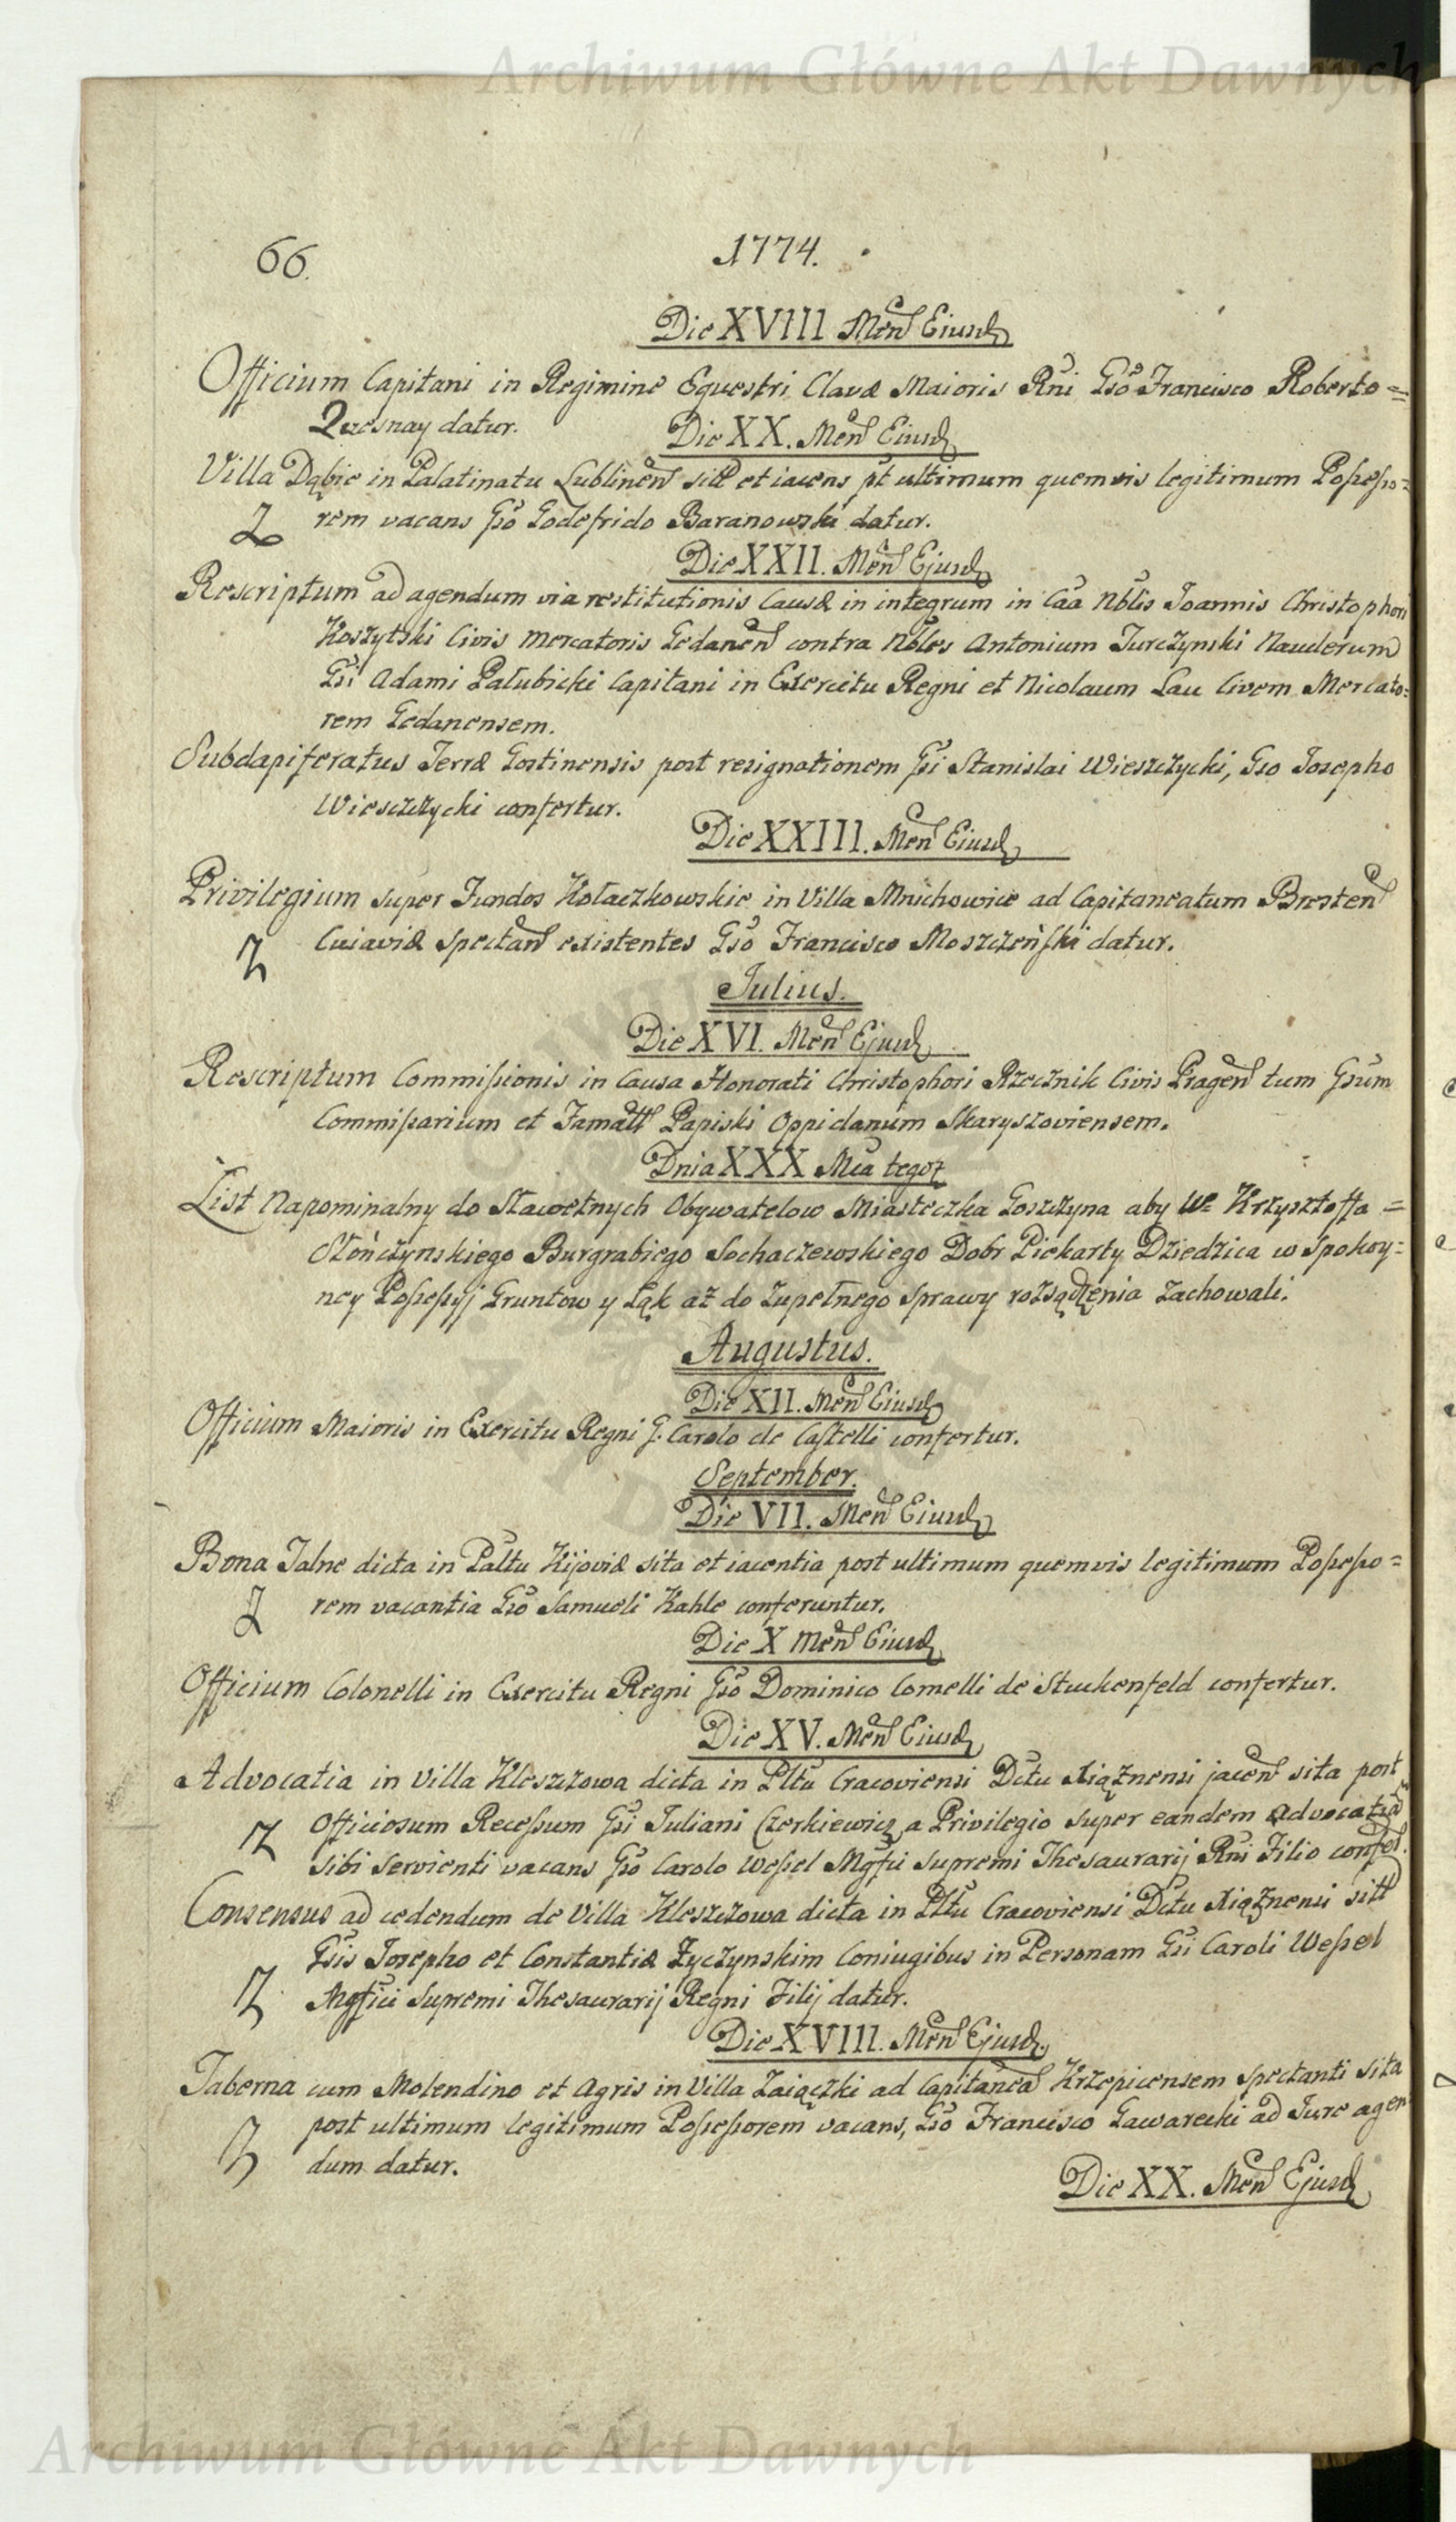 Archiwum Główne Akt Dawnych
66.
1774.
Die XVIII Men Eiusd
Officium Capitani in Regimine Equestri Clavæ Maioris Rni Gso Francisco Roberto =
Quesnay datur.
Die XX. Men Eiusd
Villa Dąbie in Palatinatu Lublinen sitt et iacens pt ultimum quemvis legitimum Possesso=
rem vacans Gso Godefrido Baranowski datur.
Die XXII. Men Ejusd
Rescriptum ad agendum via restitutionis Causæ in integrum in Caa Nblis Joannis Christophori
Koszytski Civis Mercatoris Gedanen contra Nbles Antonium Jurczynski Nauderum
Gsi Adami Pałubicki Capitani in Exercitu Regni et Nicolaum Lau Civem Mercato=
rem Gedanensem.
Subdapiferatus Terræ Gostinensis post resignationem Gsi Stanislai Wieszczycki, Gso Josepho
Wiesczzycki confertur.
Die XXIII. Men Eiusd
Privilegium super Fundos Kołaczkowskie in Villa Mnichowice ad Capitaneatum Bresten
Cuiaviæ Spectan existentes Gso Francisco Moszczeński datur.
Julius.
Die XVI. Men Ejusd
Rescriptum Commissionis in Causa Honorati Christophori Rzecznik Civis Pragen tum Gsum
Commissarium et Famatt Papiski Oppidanum Skaryszoviensem.
Dnia XXX Mca tegoż
List Napominalny do Sławetnych Obywatelow Miasteczka Goszczyna aby Ur Krzysztoffa =
Słończynskiego Burgrabiego Sochaczewskiego Dobr Piekarty Dziedzica w Spokoy=
ney Possessyj Gruntow y Łąk aż do zupełnego Sprawy rozsądzenia zachowali.
Augustus.
Die XII. Men Eiusd
Officium Maioris in Exercitu Regni G. Carolo de Castelli confertur.
September.
Die VII. Men Eiusd
Bona Jalne dicta in Paltu Kijoviæ sita et iacentia post ultimum quemvis legitimum Possesso=
rem vacantia Gso Samueli Kahle conferuntur.
Die X Men Eiusd
Officium Colonelli in Exercitu Regni Gso Dominico Comelli de Stuckenfeld confertur.
Die XV. Men Eiusd
Advocatia in Villa Kleszczowa dicta in Pltu Cracoviensi Dctu Xiążnensi jacen sita post
Officiosum Recessum Gsi Juliani Czerkiewicz a Privilegio super eandem Advocatia
sibi servienti vacans Gso Carolo Wessel Mgfci Supremi Thesaurarij Rni Filio confer.
Consensus ad cedendum de Villa Kleszczowa dicta in Pltu Cracoviensi Dctu Xiążnensi sitt
Gsis Josepho et Constantiæ Zyczynskim Coniugibus in Personam Gsi Caroli Wessel
Mgfici Supremi Thesaurarij Regni Filij datur.
Die XVIII. Men Ejusd.
Taberna cum Molendino et Agris in Villa Zaiączki ad Capitanea Krzepicensem spectanti sita
post ultimum legitimum Possessorem vacans, Gso Francisco Gawarecki ad Jure agen
dum datur.
Die XX. Men Ejusd
Archiwum Główne Akt Dawnych